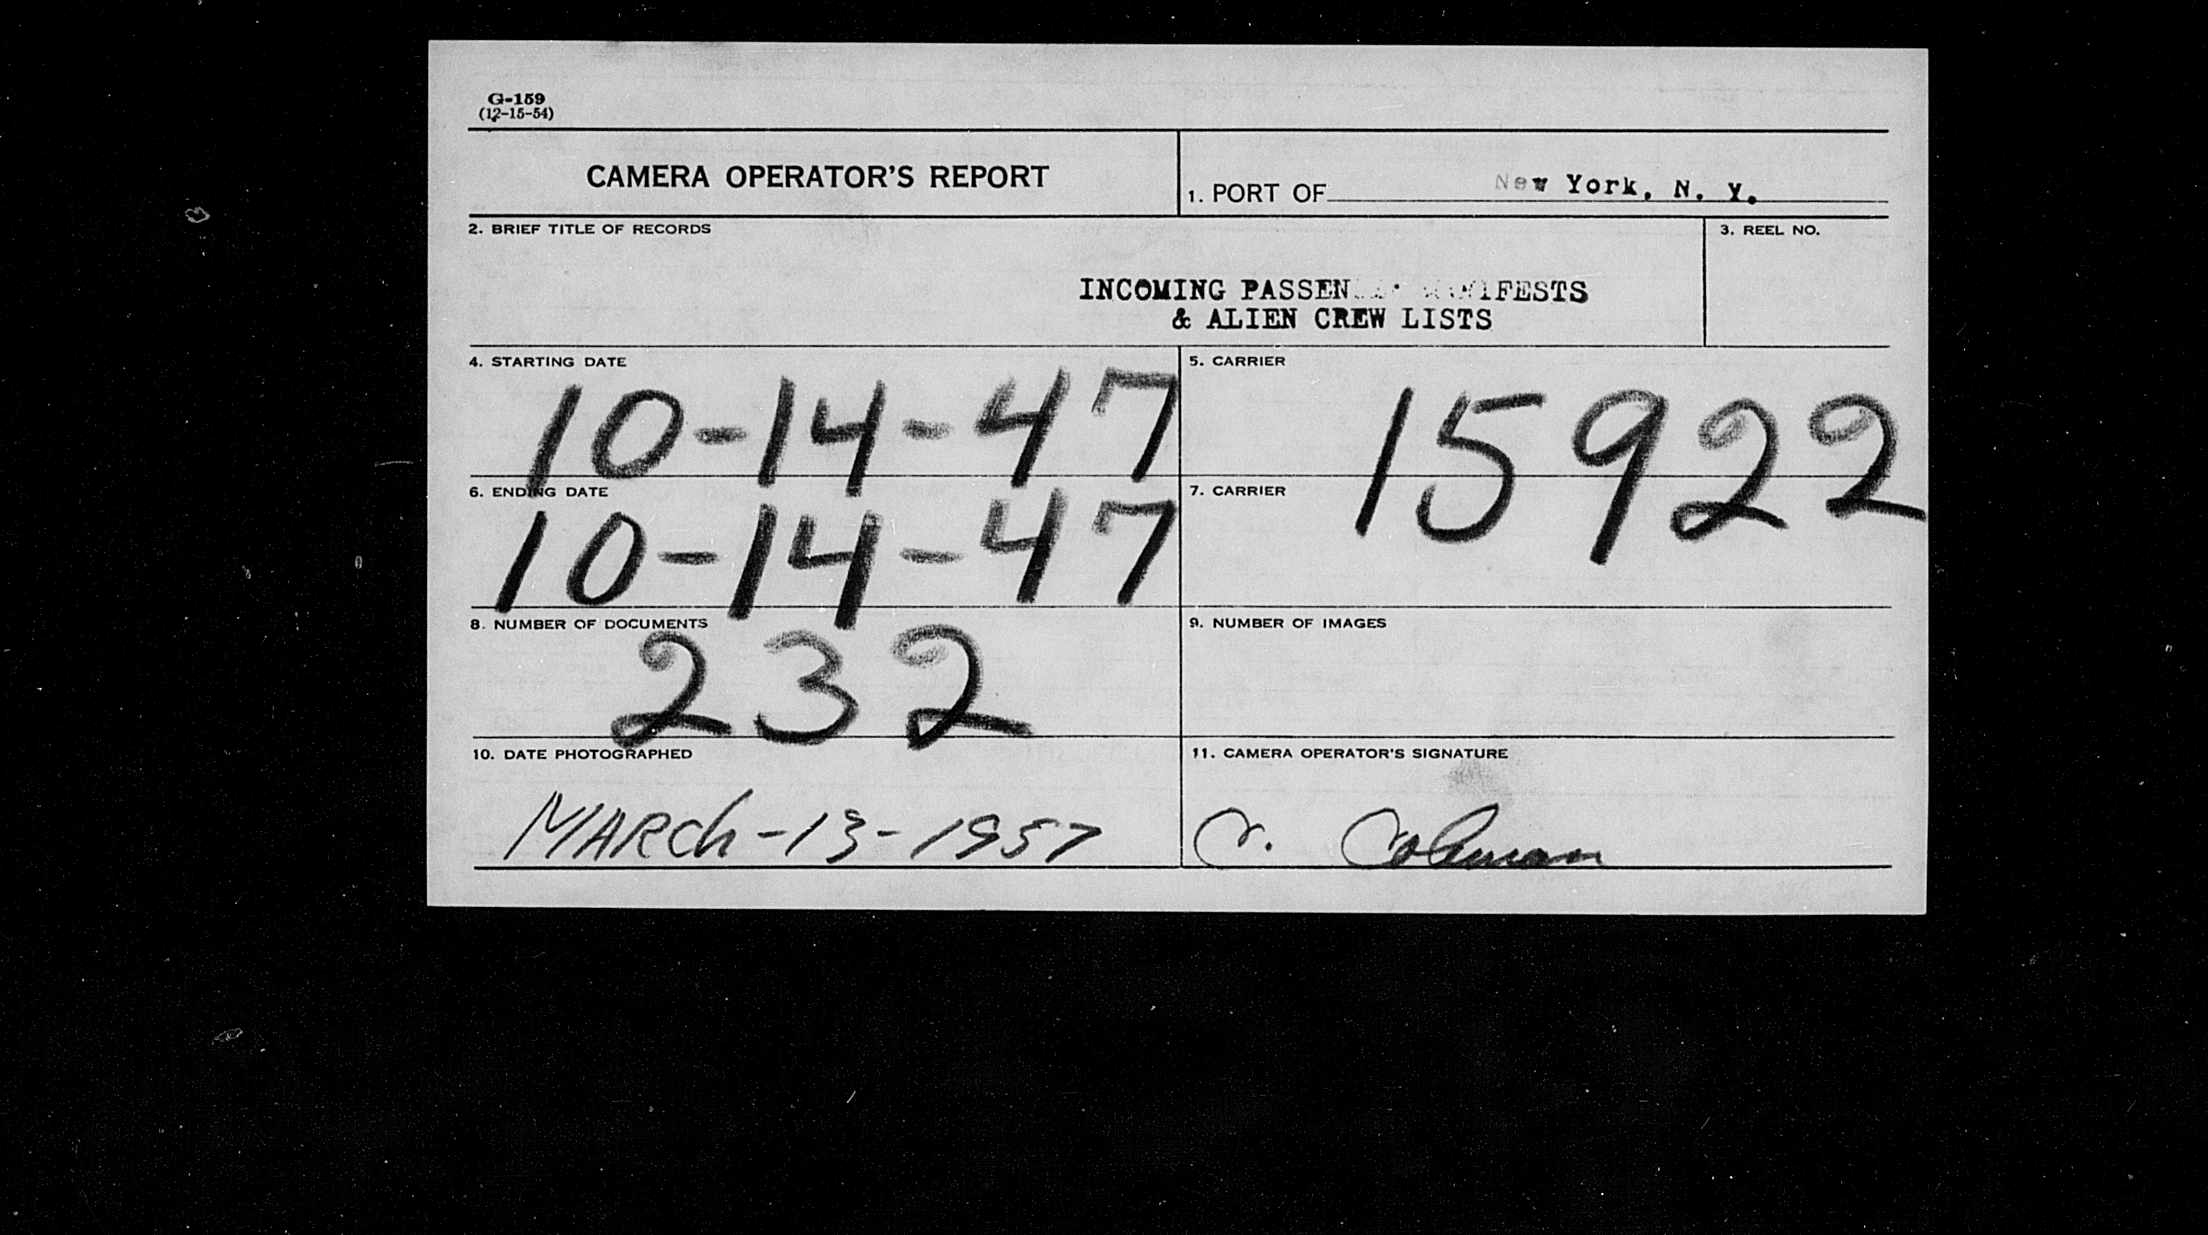 G-159
(12-15-54)
CAMERA OPERATOR'S REPORT
1. PORT OF New York, N. Y.
2. BRIEF TITLE OF RECORDS
3. REEL NO.
INCOMING PASSEN MANIFESTS
& ALIEN CREW LISTS
4. STARTING DATE
10-14-47
5. CARRIER
15922
6. ENDING DATE
10-14-47
7. CARRIER
8. NUMBER OF DOCUMENTS
232
9. NUMBER OF IMAGES
10. DATE PHOTOGRAPHED
MARCh-13-1957
11. CAMERA OPERATOR'S SIGNATURE